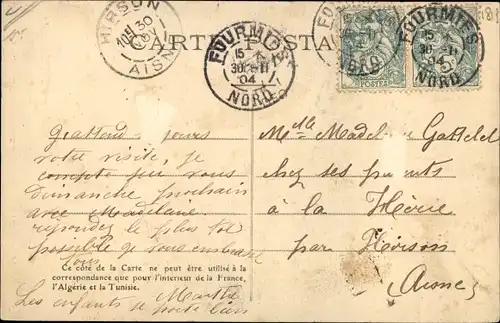 HIRSON
30
AISNE
CARTE POSTALE
FOURMIES
15
30-11
04
NORD
FOURMIES
NORD
POSTES
FOURMIES
15
30-11
04
NORD
5
J'attends toujours
votre visite, je
compte sur vous
dimanche prochain
avec Madeleine.
répondez le plus tôt
possible je vous embrasse
tous
Marthe
Les enfants se porte bien
Ce côté de la Carte ne peut être utilisé à la
correspondance que pour l'intérieur de la France,
l'Algérie et la Tunisie.
Melle Madeleine
chez ses parents
à la Hérie
par Hirson
(Aisne)